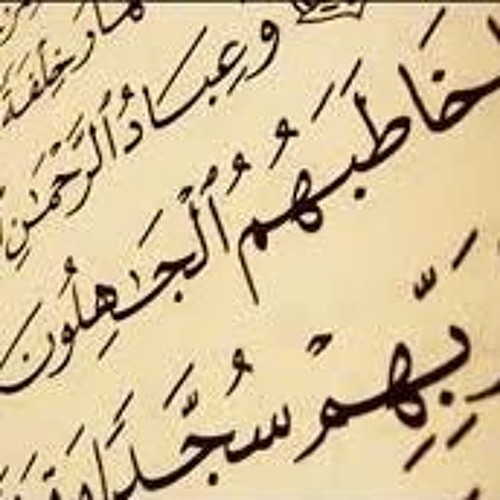 خِلْفَةً
وَعِبَادُ ٱلرَّحْمَٰنِ
خَاطَبَهُمُ ٱلْجَٰهِلُونَ
رَبِّهِمْ سُجَّدًا وَقِ